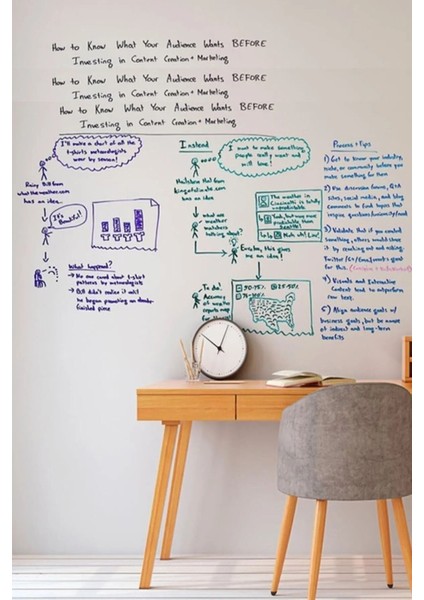 How to Know What Your Audience Wants BEFORE
Investing in Content Creation + Marketing
How to Know What Your Audience Wants BEFORE
Investing in Content Creation + Marketing
How to Know What Your Audience Wants BEFORE
Investing in Content Creation + Marketing
I'll make a chart of all the
t-shirts meteorologists
wear by season!
Rainy Bill from
whattheweather.com
has an idea...
It's
Beautiful!
What happened?
→ No one cared about t-shirt
patterns by meteorologists
→ Bill didn't realize it until
he began promoting an
finished piece
Instead
I want to make something
people really want and
will love!
from
has an idea
what are
weather
watchers
talking
about?
The weather in
Cincinnati is totally
unpredictable
Yeah, but way more
predictable than
Seattle!
Nuh uh! Lies!
Eureka, this gives
me an idea!
To do:
Accuracy
of weather
reports map
90-95%
76-80%
Process + Tips
1) Get to know your industry,
niche, or community before you
make something for them
2) Use discussion forums, Q&A
sites, social media, and blog
comments to find topics that
inspire questions/curiosity/need
3) Validate that if you created
something, others would share
it by reaching out and asking.
for this.
4) Visuals and Interactive
Content tend to outperform
raw text.
5) Align audience goals w/
business goals, but be aware
of indirect and long-term
benefits